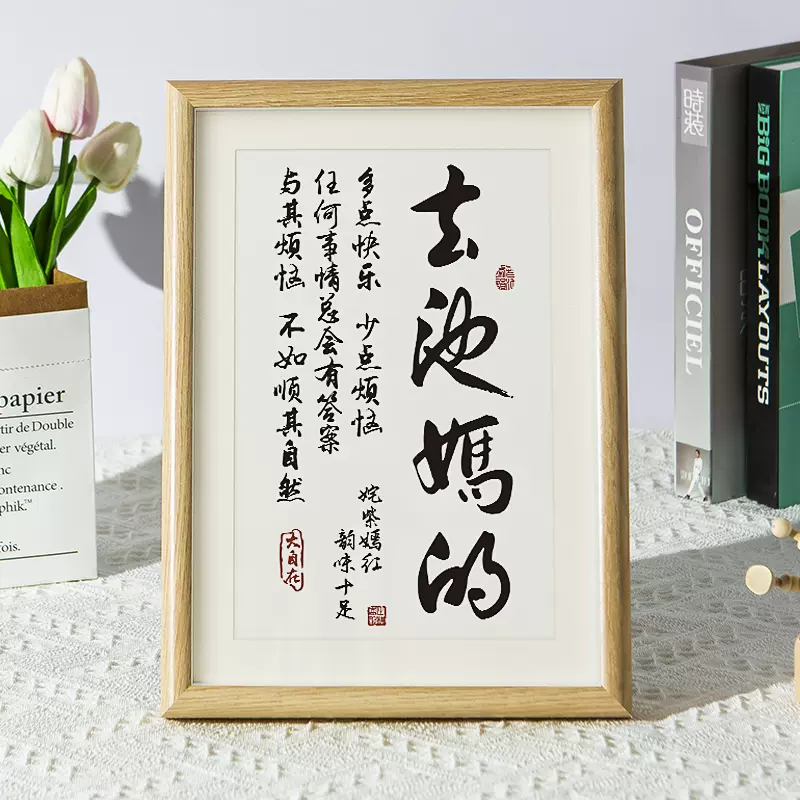 去池媽的
多点快乐 少点烦恼
任何事情总会有答案
与其烦恼 不如顺其自然
姹紫嫣红
韵味十足
大自在
papier
rtir de Double
er végétal.
nc
ontenance .
phik.™
fois.
時装
OFFICIEL
BIG BOOK LAYOUTS